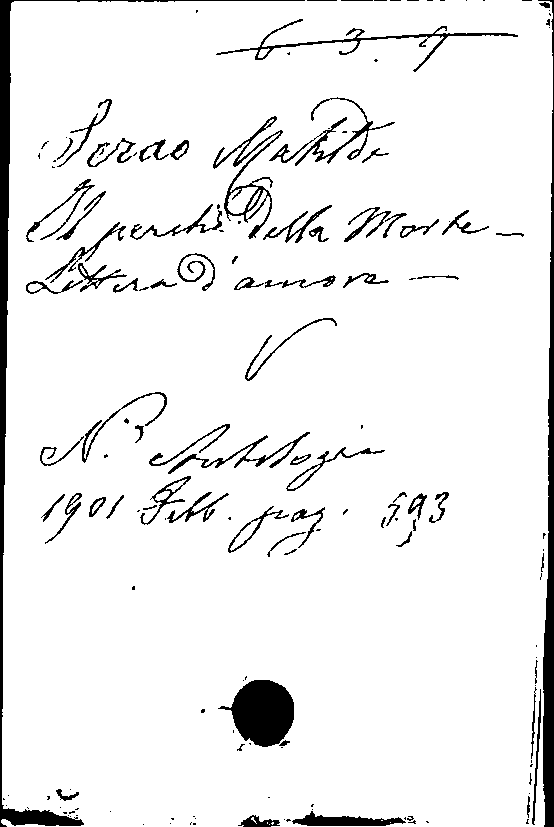 6. 3. 9
Serao Matilde
Il perchè della Morte —
Lettera d'amore —
V
N.a Antologia
1901 Febb. pag. 593